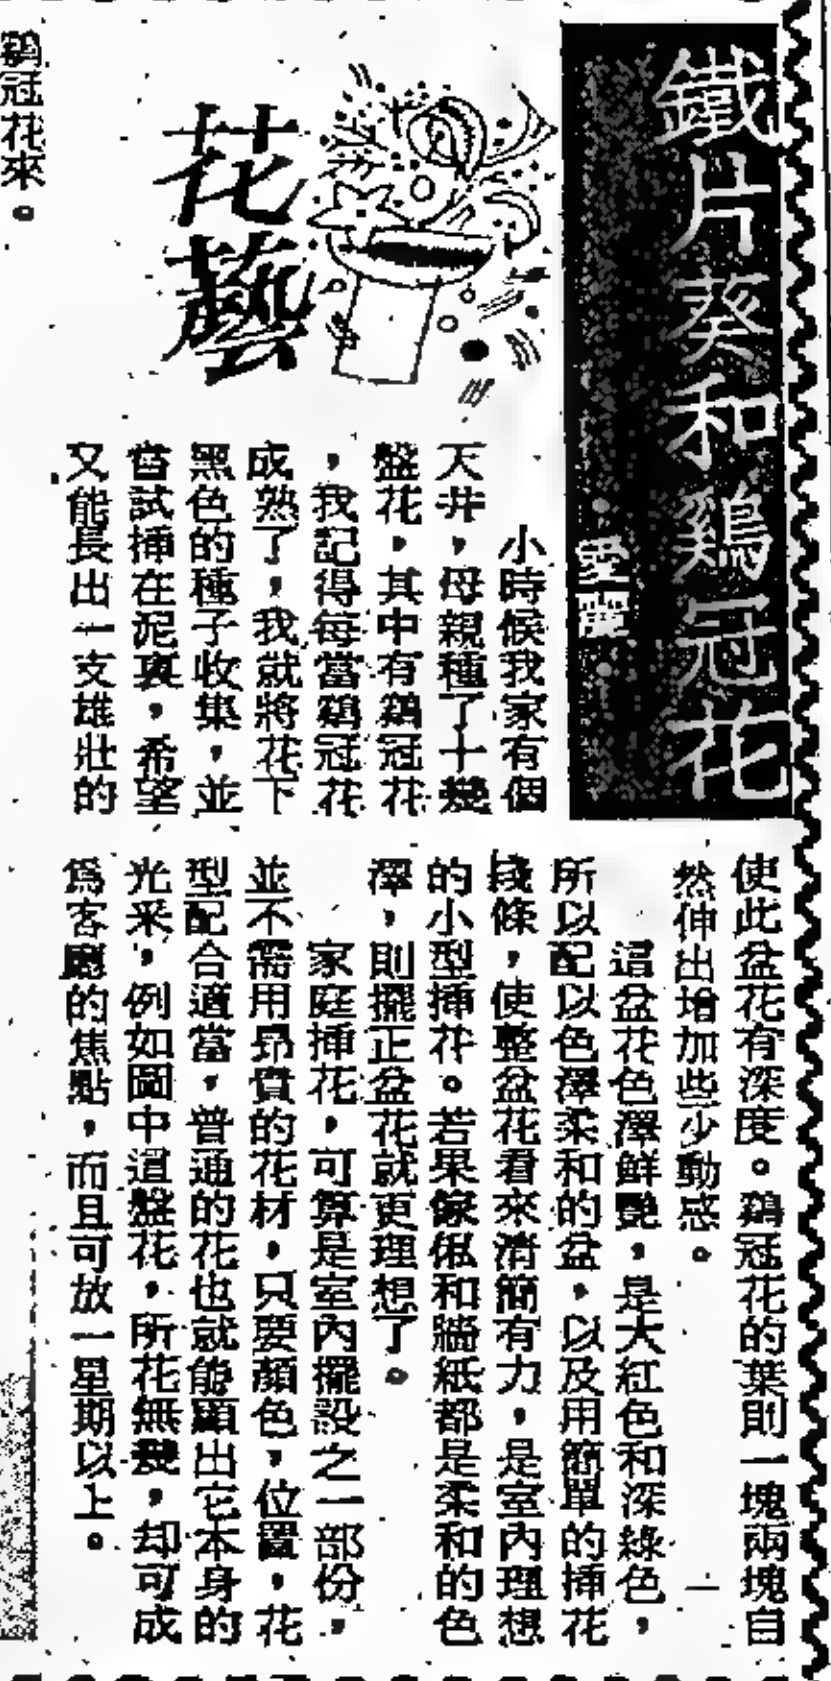 鐵片葵和鷄冠花
·愛麗·
花藝
小時候我家有個
天井，母親種了十幾
盤花，其中有鷄冠花
，我記得每當鷄冠花
成熟了，我就將花下
黑色的種子收集，並
嘗試揷在泥裏，希望
又能長出一支雄壯的
鷄冠花來。
使此盆花有深度。鷄冠花的葉則一塊兩塊自
然伸出增加些少動感。
這盆花色澤鮮艷，是大紅色和深綠色，
所以配以色澤柔和的盆，以及用簡單的揷花
綫條，使整盆花看來清簡有力，是室內理想
的小型揷花。若果傢俬和牆紙都是柔和的色
澤，則擺正盆花就更理想了。
家庭揷花，可算是室內擺設之一部份，
並不需用昂貴的花材，只要顏色，位置，花
型配合適當，普通的花也就能顯出它本身的
光采，例如圖中這盤花，所花無幾，却可成
爲客廳的焦點，而且可放一星期以上。